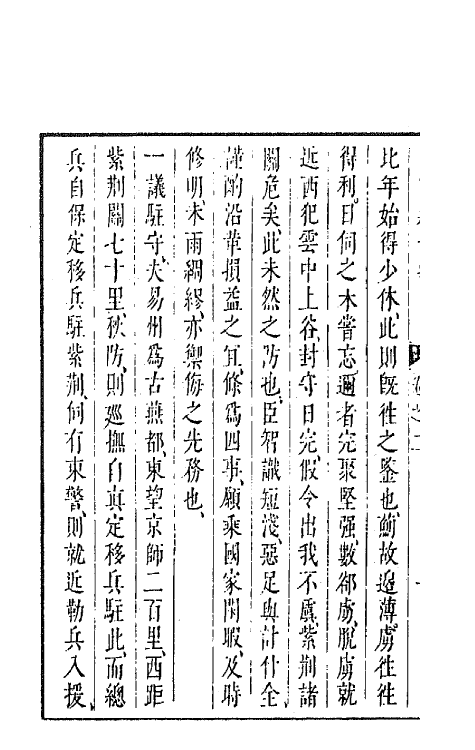 比年始得少休、此則旣徃之鑒也、薊故逼薄、虜徃徃
得利、日伺之未嘗忘、邇者完聚堅强、數郤虜、脫虜就
近西犯雲中上谷、封守日完、假令出我不虞、紫荆諸
關危矣、此未然之防也、臣智識短淺、惡足與計什全、
謹酌沿革損益之宜、條爲四事、願乘國家閑暇、及時
修明、未雨綢繆、亦禦侮之先務也、
一議駐守、夫易州爲古燕都、東望京師二百里、西距
紫荆關七十里、秋防、則巡撫自真定移兵駐此、而總
兵自保定移兵駐紫荆、伺有東警、則就近勒兵入援、